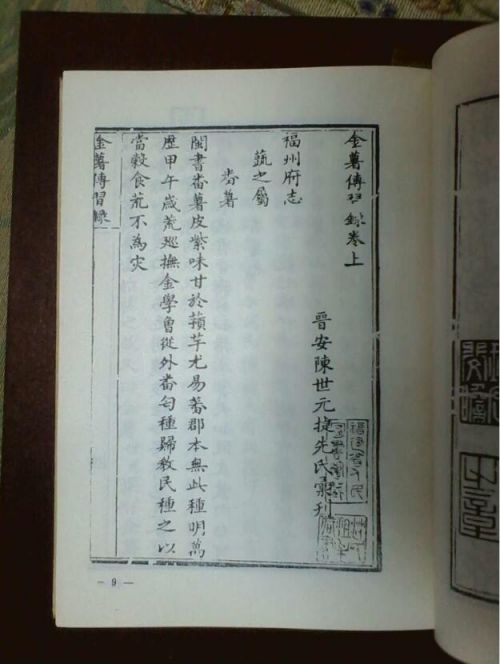 金薯傳習錄卷上
晉安陳世元捷先氏彙刊
福州府志
蔬之屬
畨薯
閩書畨薯皮紫味甘於藷芋尤易蕃郡本無此種明萬
歷甲午歲荒廵撫金學㑹從外畨匄種歸教民種之以
當穀食荒不為灾
金薯傳習錄
— 9 —